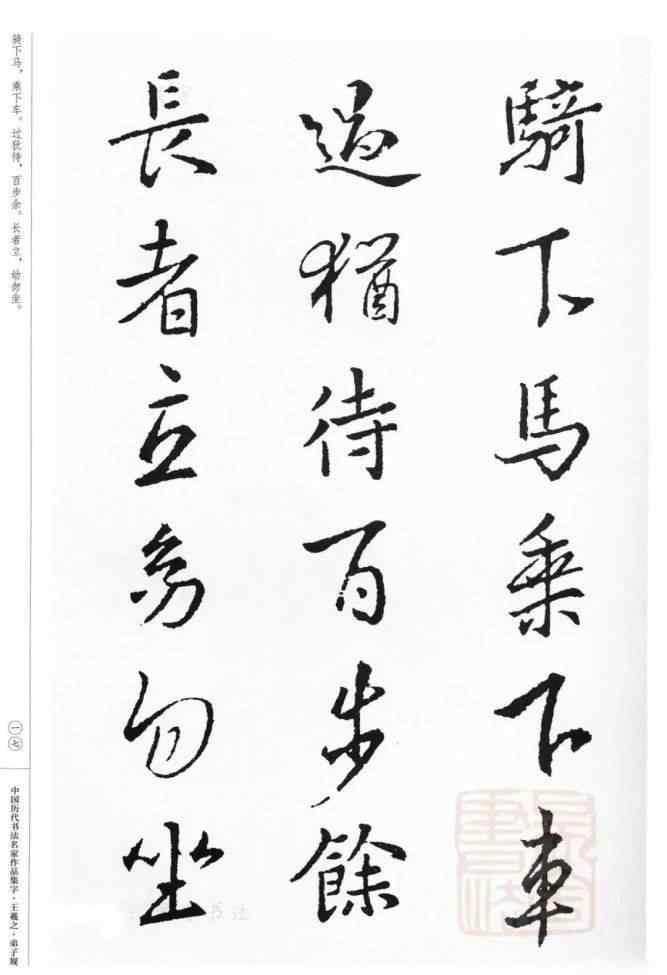 騎下馬乘下車
過猶待百步餘
長者立幼勿坐
骑下马，乘下车。过犹待，百步余。长者立，幼勿坐。
一七
中国历代书法名家作品集字·王羲之·弟子规
书法